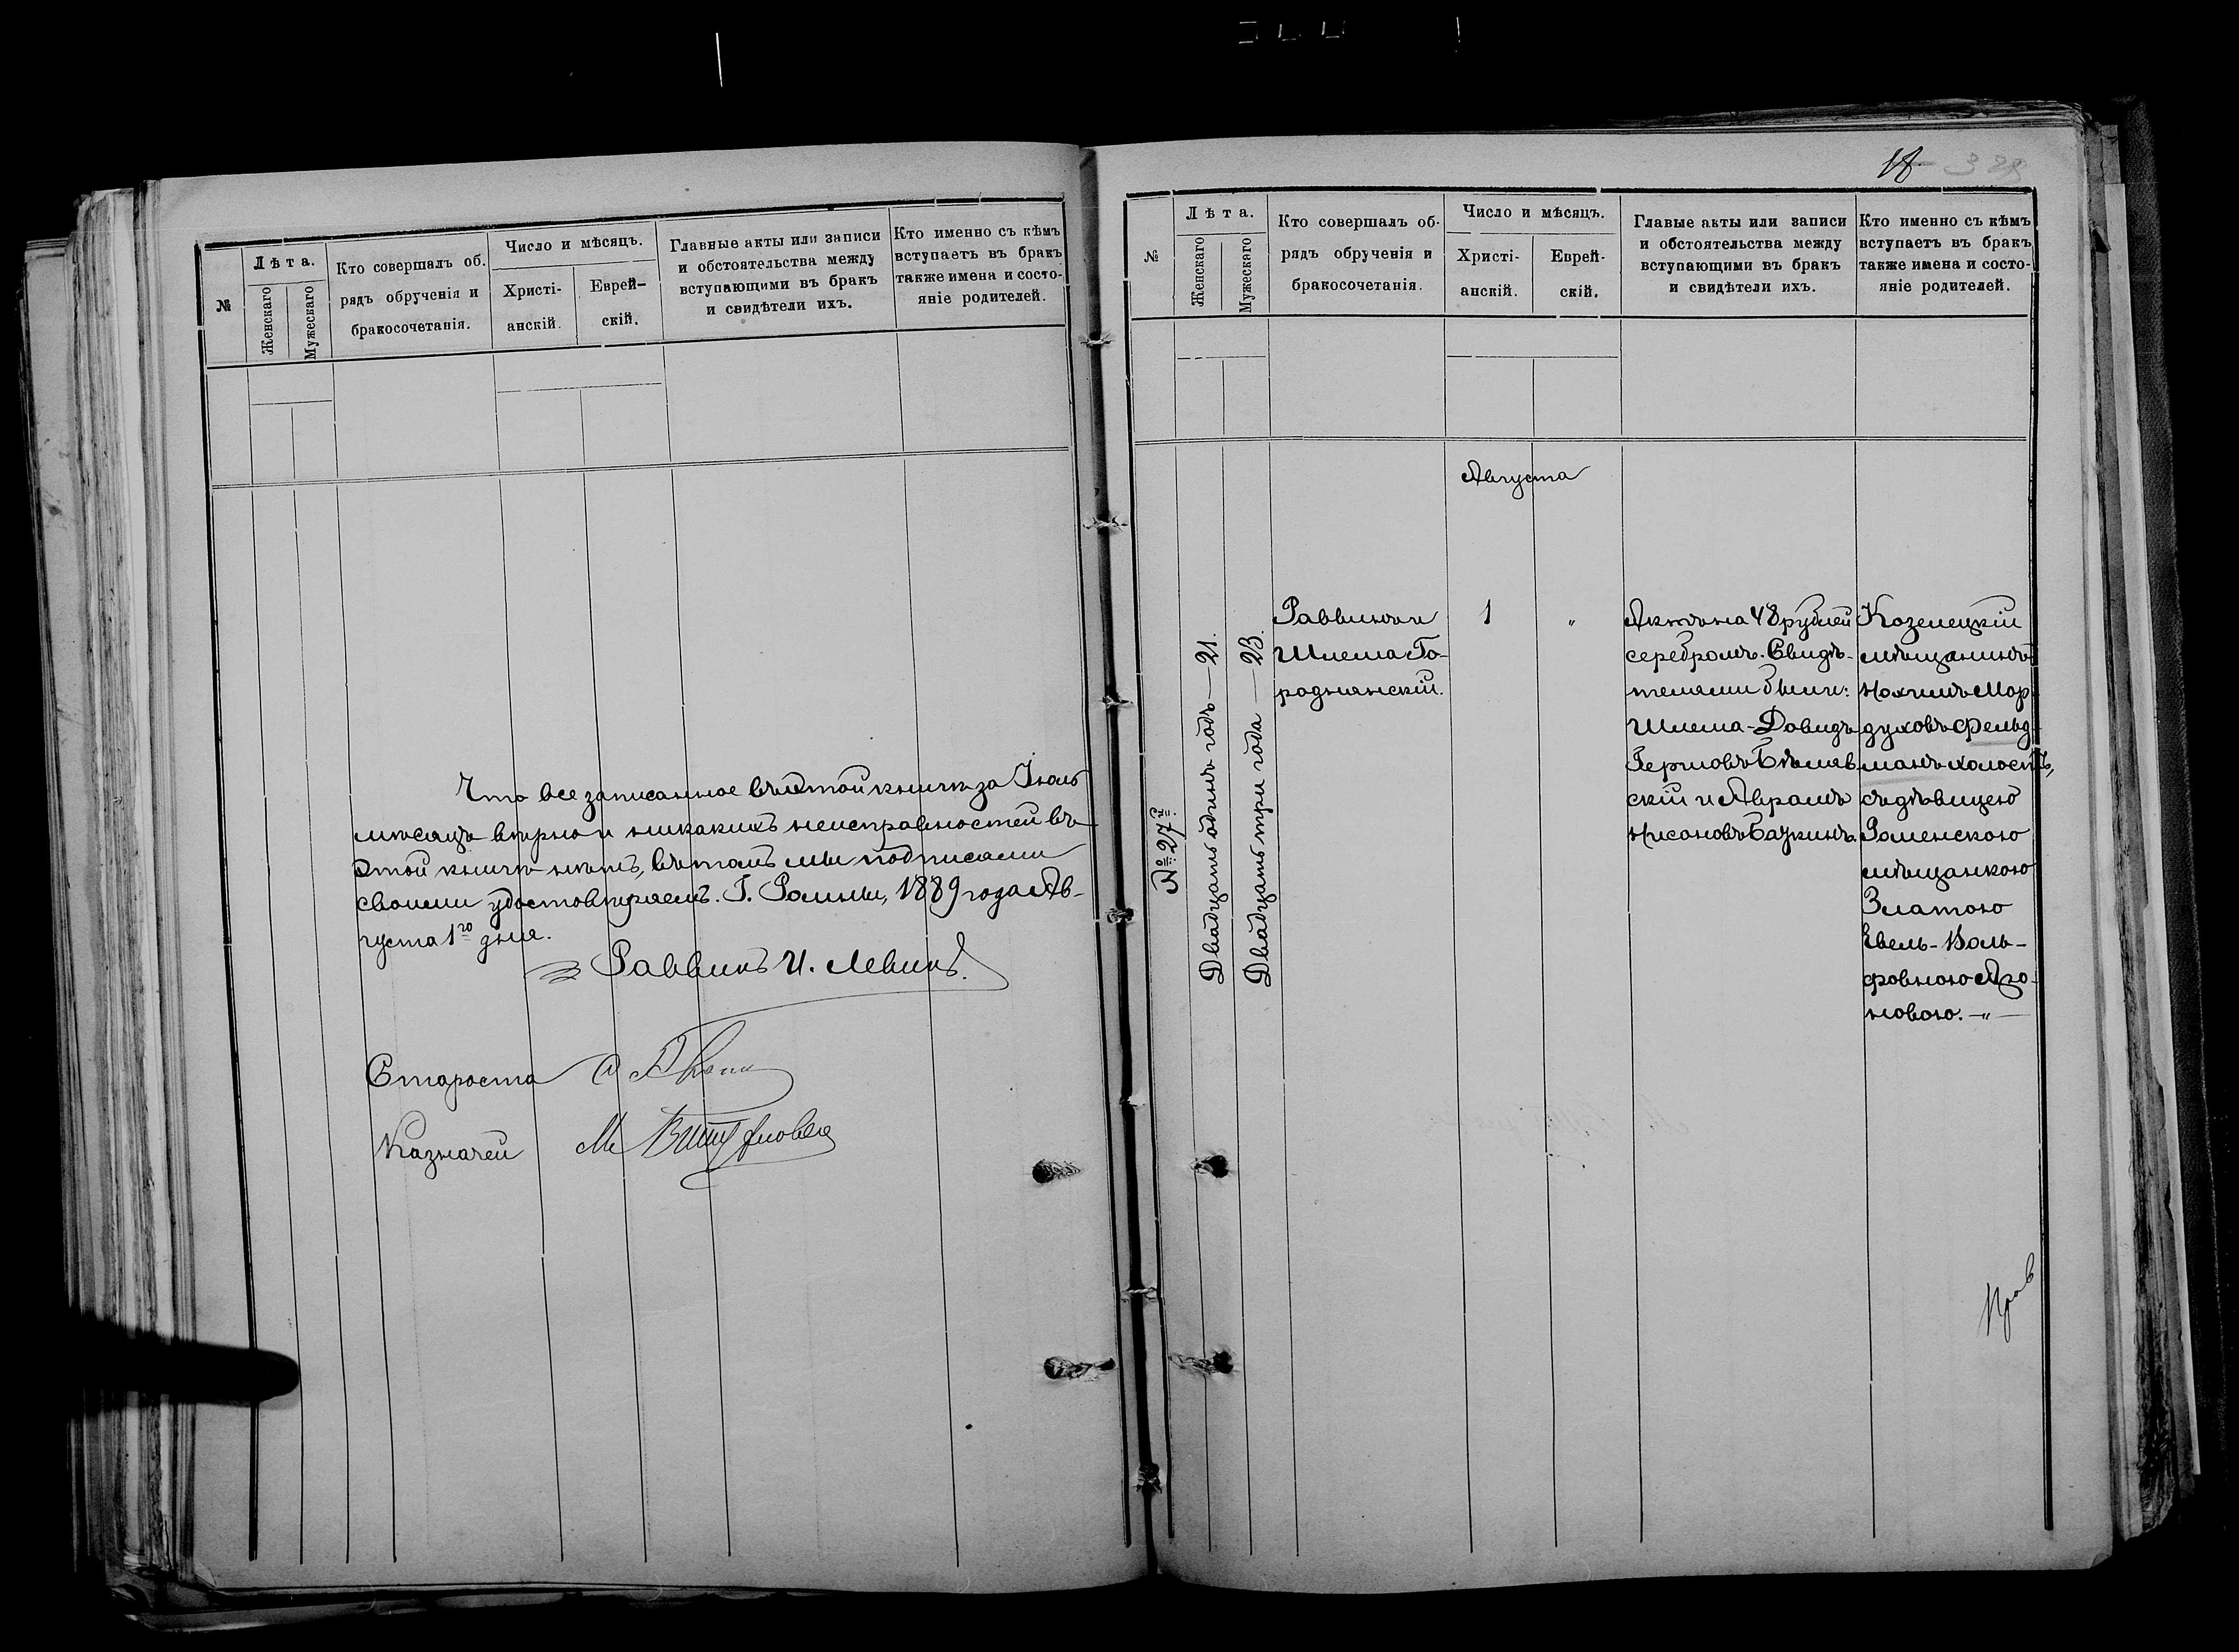 №
Лѣта.
Женскаго
Мужескаго
Кто совершалъ об.
рядъ обрученія и
бракосочетанія.
Число и мѣсяцъ.
Христі-
анскій.
Еврей-
скій.
Главные акты или записи
и обстоятельства между
вступающими въ бракъ
и свидѣтели ихъ.
Кто именно съ кѣмъ
вступаетъ въ бракъ
также имена и состо-
яніе родителей.
Что все записанное въ этой книгѣ за Іюль
мѣсяцъ вѣрно и никакихъ неисправностей въ
этой книгѣ нѣтъ, въ томъ мы подписами
своими удостовѣряемъ. Г. Ромны, 1889 года Ав-
густа 1го дня.
Раввинъ И. Левинъ.
Староста
Казначей М
18
№
Лѣта.
Женскаго
Мужескаго
Кто совершалъ об-
рядъ обрученія и
бракосочетанія.
Число и мѣсяцъ.
Христі-
анскій.
Еврей-
скій.
Главые акты или записи
и обстоятельства между
вступающими въ бракъ
и свидѣтели ихъ.
Кто именно съ кѣмъ
вступаетъ въ бракъ
также имена и состо-
яніе родителей.
Августа
№ 27й.
Двадцать одинъ годъ — 21.
Двадцать три года — 23.
Раввинъ и
Шлема Го-
роднянскій.
1
"
Актъ на 48 рублей
серебромъ. Свидѣ-
телями были:
Шлема-Довидъ
Гершовъ Бѣляв-
скій и Аврамъ
Нисоновъ Баткинъ.
Козелецкій
мѣщанинъ
Нохимъ Мор-
духовъ Фельд-
манъ холостъ,
съ дѣвицею
Роменскою
мѣщанкою
Златою
Евель-Воль-
фовною Аро-
новою. —"—